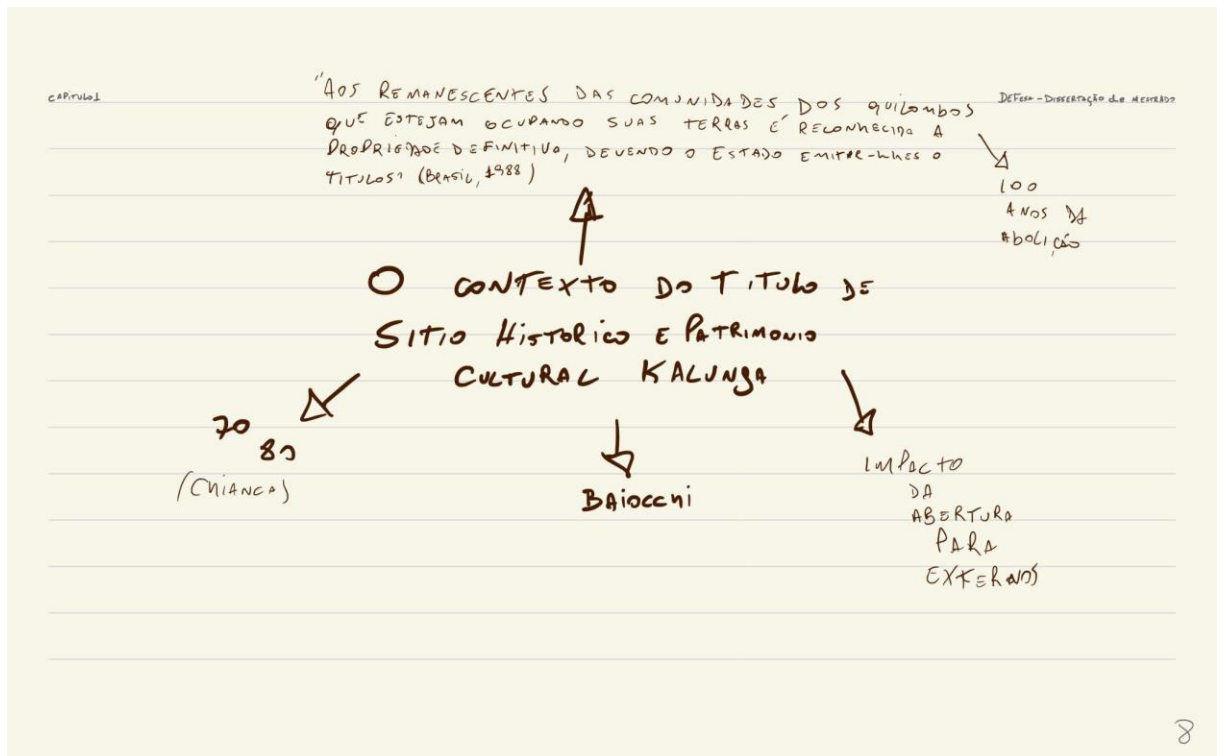 CAPITULO 1
DEFESA - DISSERTAÇÃO de MESTRADO
"AOS REMANESCENTES DAS COMUNIDADES DOS QUILOMBOS
QUE ESTEJAM OCUPANDO SUAS TERRAS É RECONHECIDA A
PROPRIEDADE DEFINITIVA, DEVENDO O ESTADO EMITIR-LHES O
TITULOS" (BRASIL, 1988)
100
ANOS DA
ABOLIÇÃO
O CONTEXTO DO TITULO DE
SITIO HISTORICO E PATRIMONIO
CULTURAL KALUNGA
70
80
(CRIANÇA)
BAIOCCHI
IMPACTO
DA
ABERTURA
PARA
EXTERNOS
8